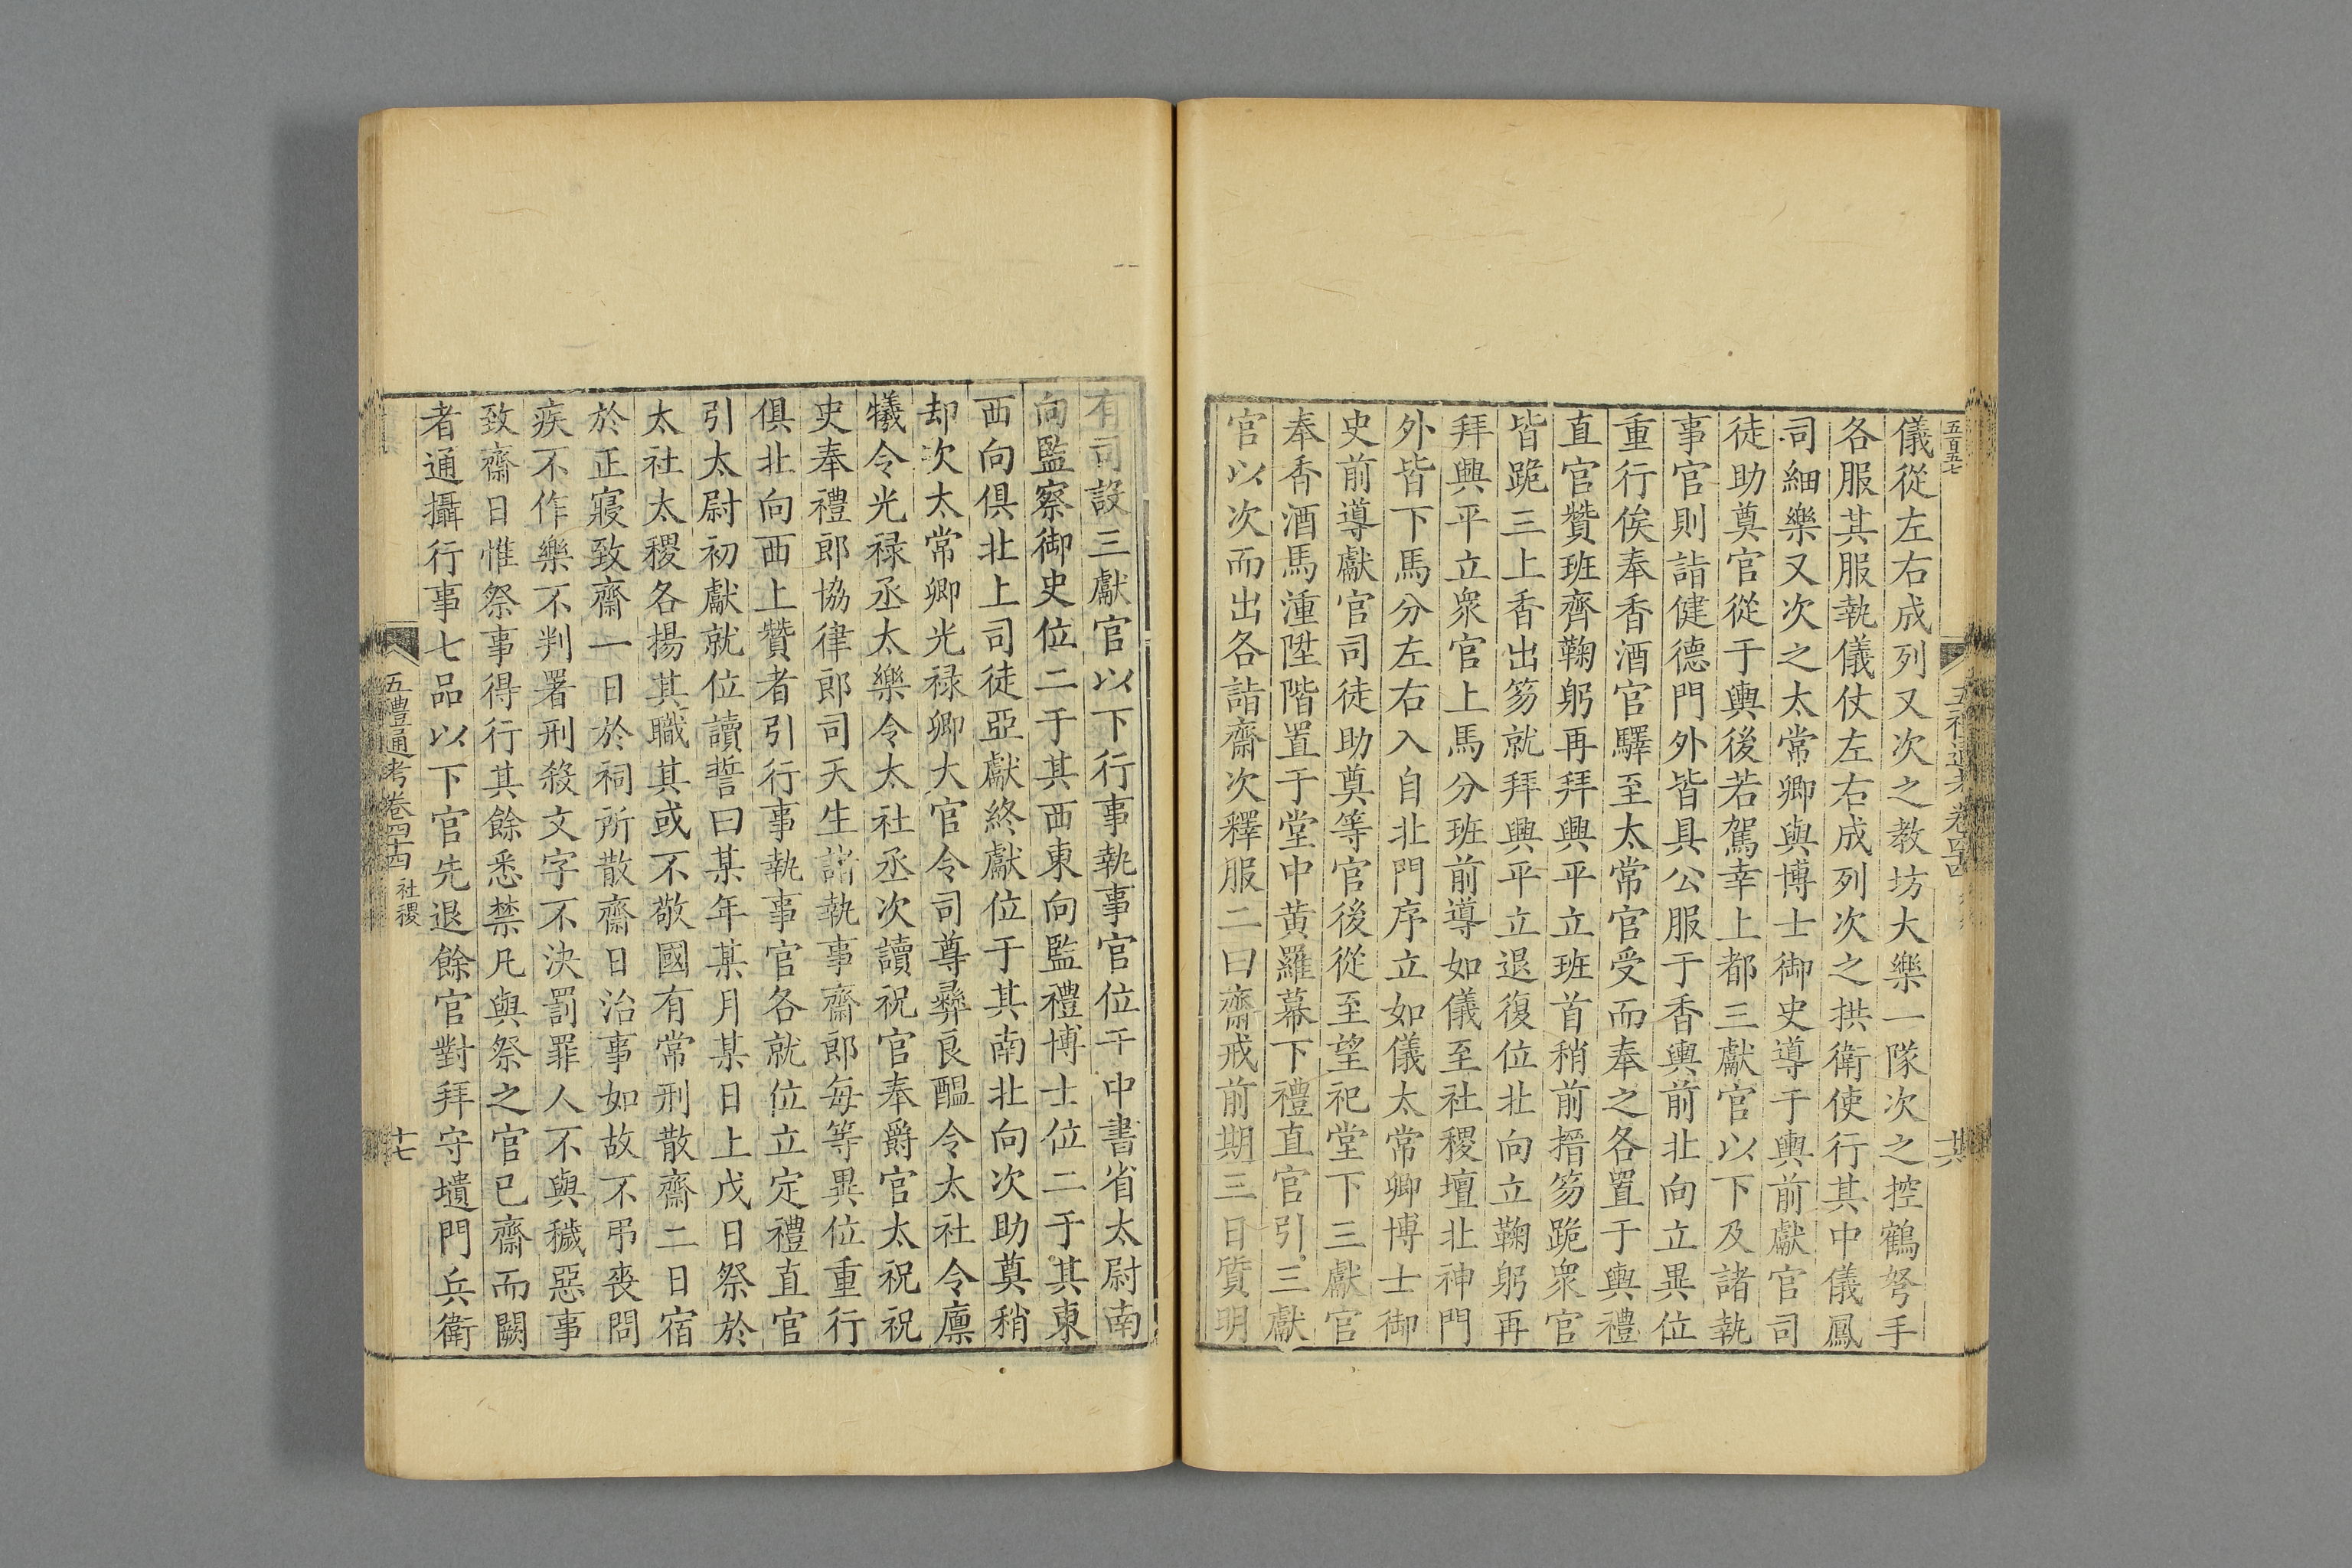 五百五七
五禮通考卷四四
共
儀從左右成列又次之教坊大樂一隊次之控鶴弩手
各服其服執儀仗左右成列次之拱衛使行其中儀鳳
司細樂又次之太常卿與博士御史導于輿前獻官司
徒助奠官從于輿後若駕幸上都三獻官以下及諸執
事官則詣健德門外皆具公服于香輿前北向立異位
重行俟奉香酒官驛至太常官受而奉之各置于輿禮
直官贊班齊鞠躬再拜興平立班首稍前搢笏跪衆官
皆跪三上香出笏就拜興平立退復位北向立鞠躬再
拜興平立衆官上馬分班前導如儀至社稷壇北神門
外皆下馬分左右入自北門序立如儀太常卿博士御
史前導獻官司徒助奠等官後從至望祀堂下三獻官
奉香酒馬湩陞階置于堂中黄羅幕下禮直官引三獻
官以次而出各詣齋次釋服二曰齋戒前期三日質明
有司設三獻官以下行事執事官位于中書省太尉南
向監察御史位二于其西東向監禮博士位二于其東
西向俱北上司徒亞獻終獻位于其南北向次助奠稍
却次太常卿光禄卿大官令司尊彝良醖令太社令廪
犧令光禄丞太樂令太社丞次讀祝官奉爵官太祝祝
史奉禮郎協律郎司天生諸執事齋郎每等異位重行
俱北向西上贊者引行事執事官各就位立定禮直官
引太尉初獻就位讀誓曰某年某月某日上戊日祭於
太社太稷各揚其職其或不敬國有常刑散齋二日宿
於正寢致齋一日於祠所散齋日治事如故不弔喪問
疾不作樂不判署刑殺文字不決罰罪人不與穢惡事
致齋日惟祭事得行其餘悉禁凡與祭之官已齋而闕
者通攝行事七品以下官先退餘官對拜守壝門兵衛
五禮通考卷四十四 社稷
十七